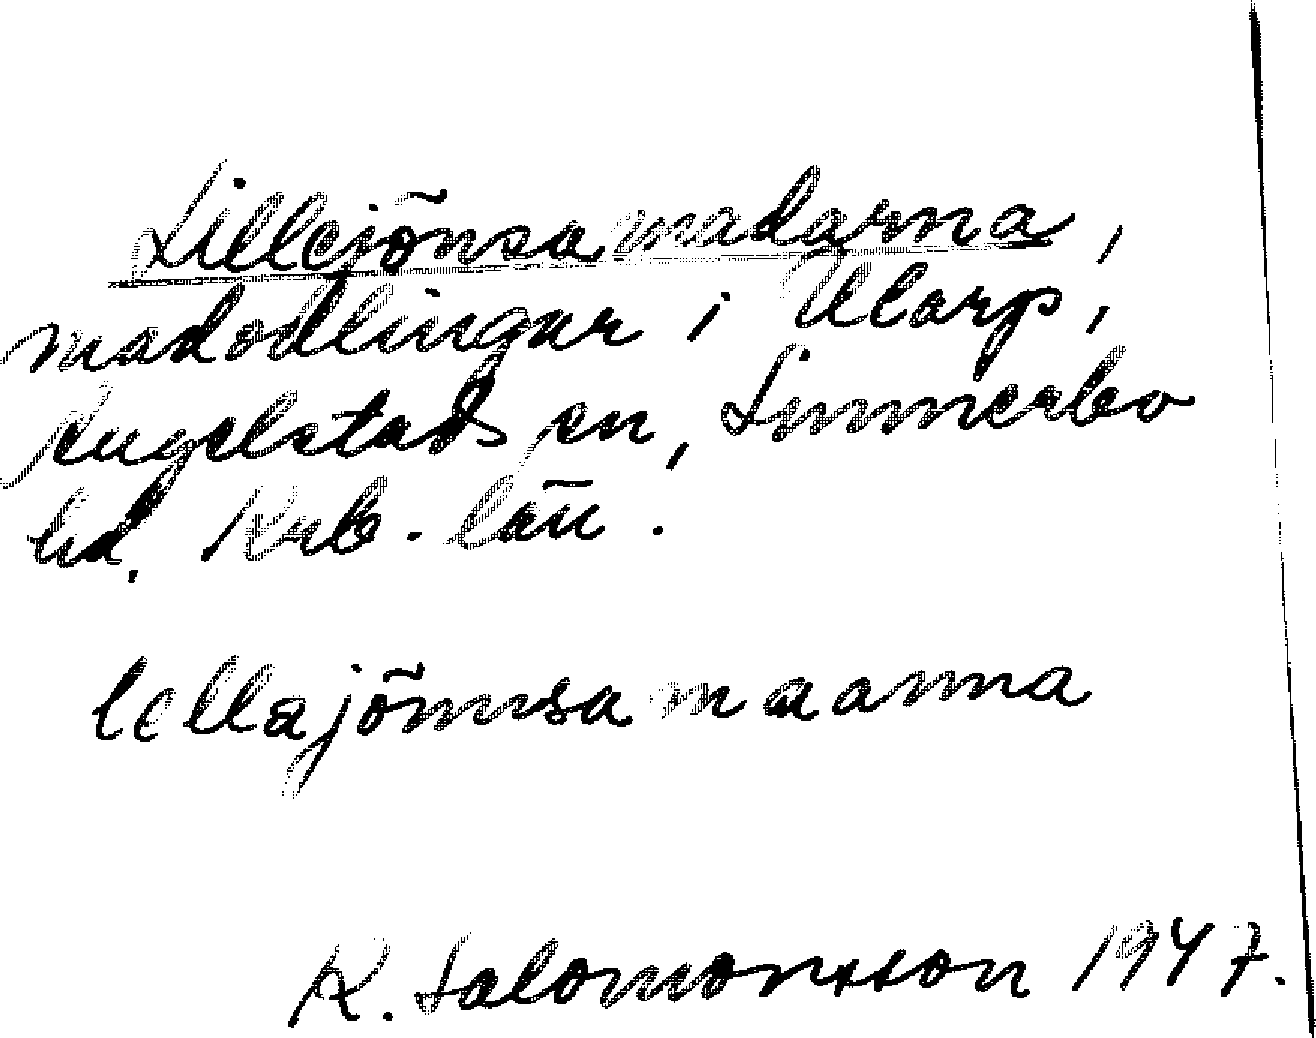 Lillejönsamadarna,
madodlingar i Ularp,
Angelstads sn, Sunnerbo
hd. Krb. län.
lellajönnsa maanna
K. Salomonsson 1947.